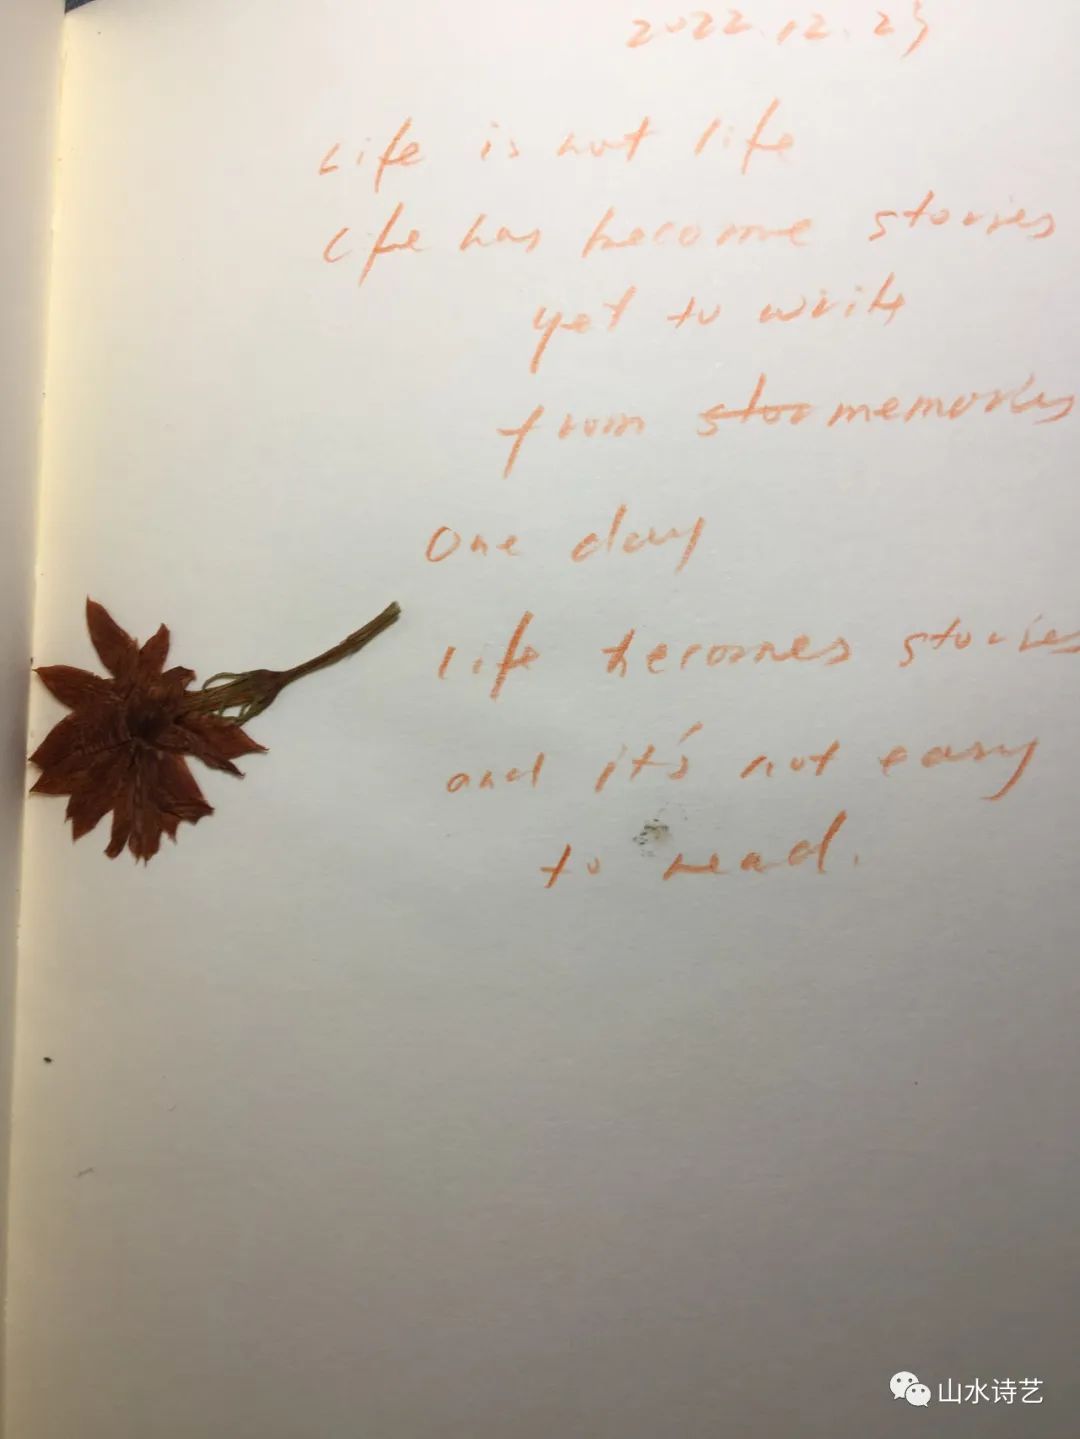 2022.12.23
Life is not life
Life has become stories
yet to write
from stor memories
One day
life becomes stories
and it's not easy
to read.
山水诗艺